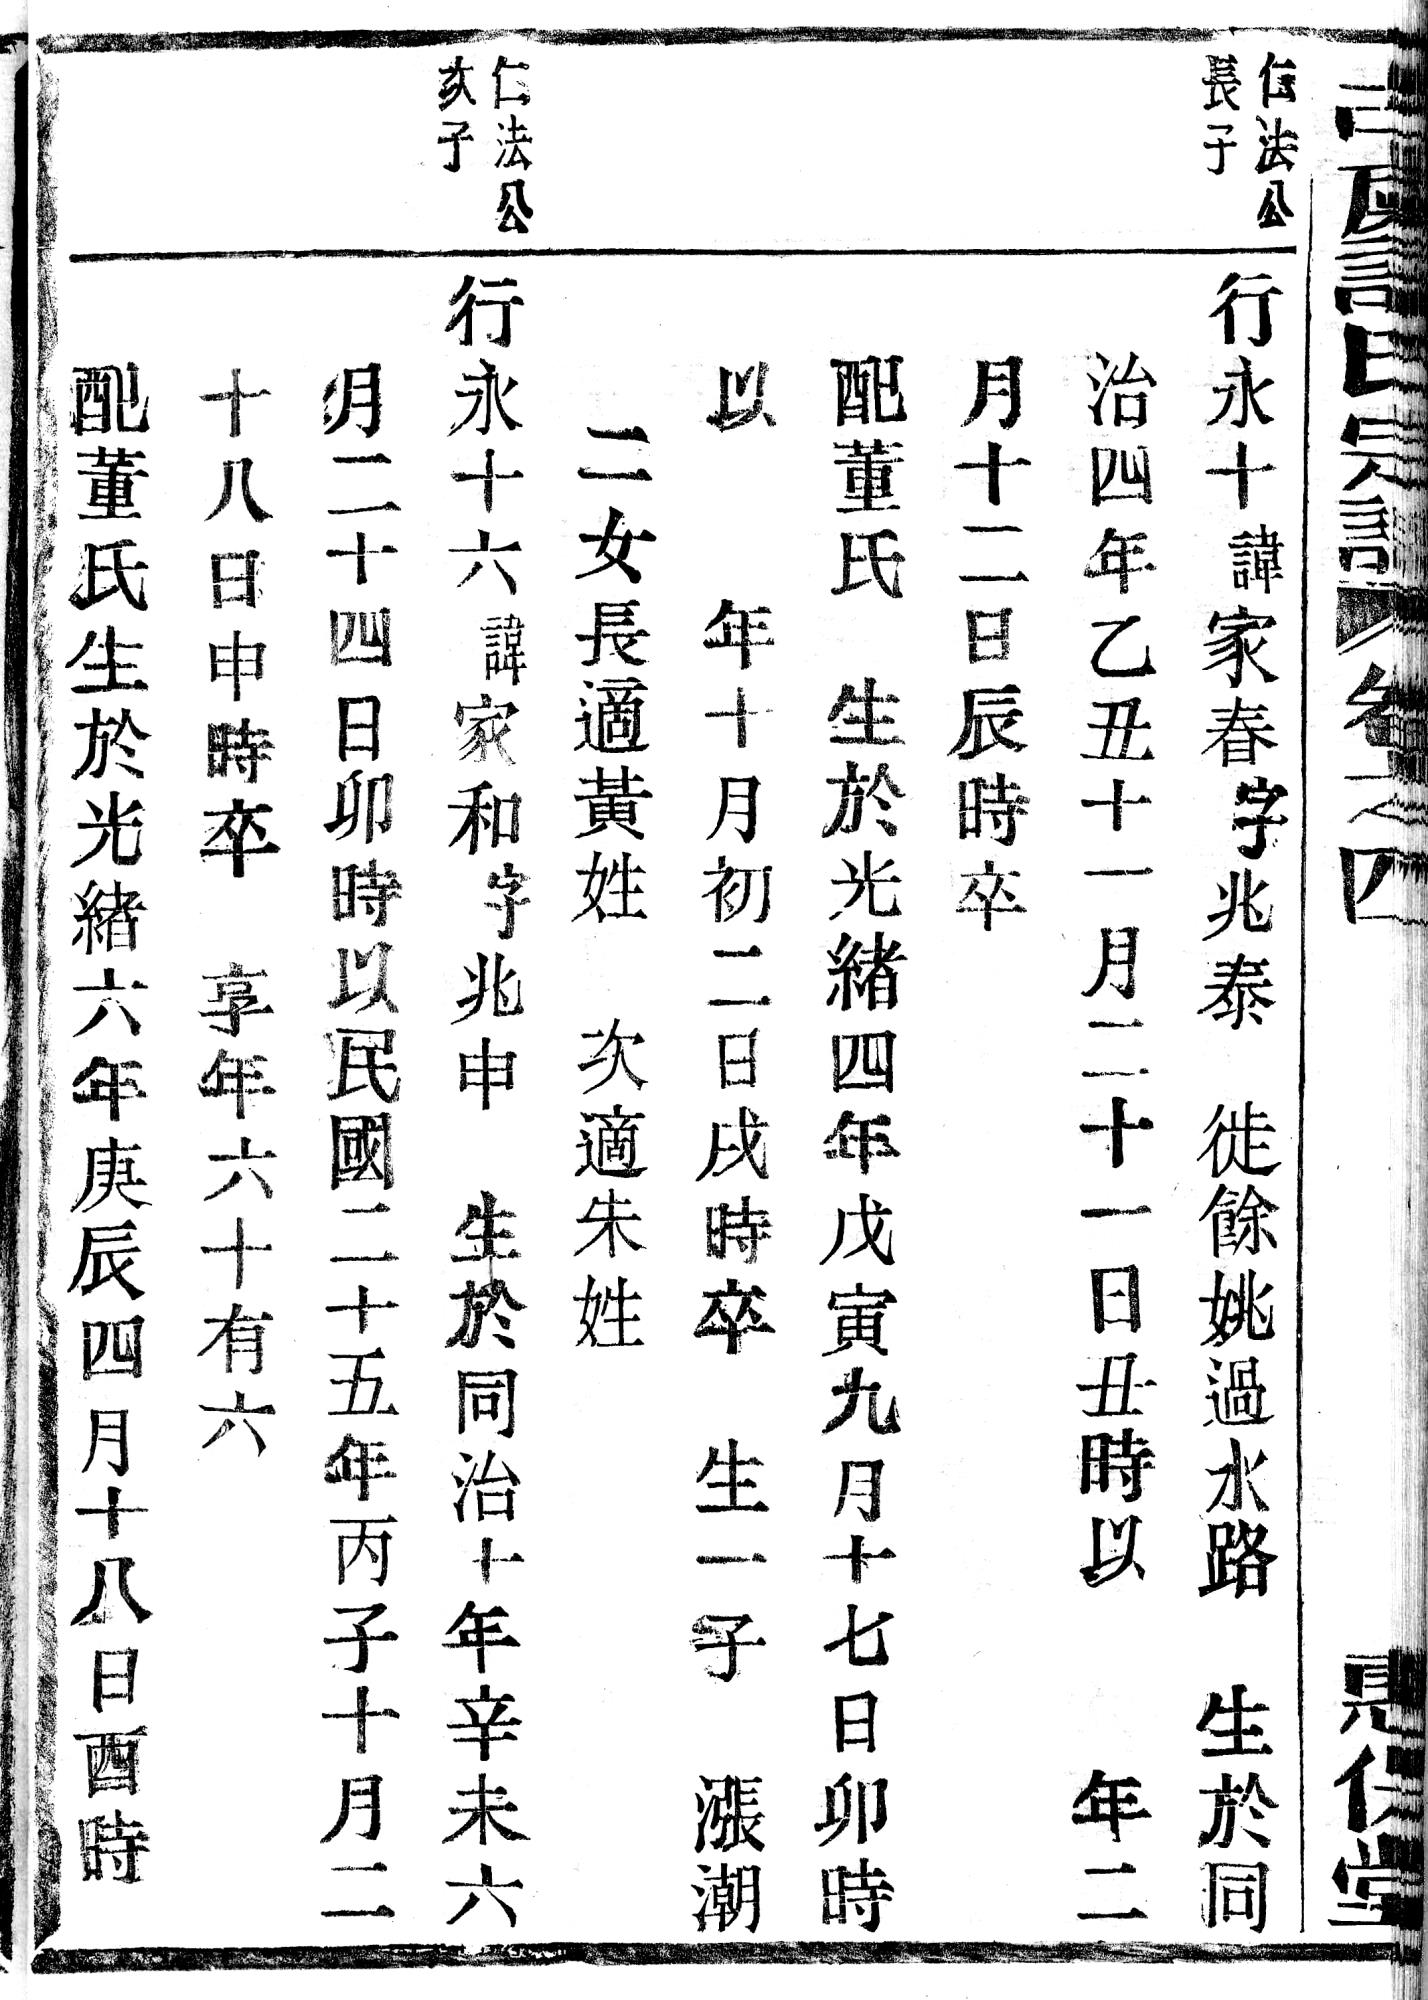 氏宗譜 卷之四
堂
仁法公
長子
行永十諱家春字兆泰 徙餘姚過水路 生於同
治四年乙丑十一月二十一日丑時以 年二
月十二日辰時卒
配董氏 生於光緒四年戊寅九月十七日卯時
以 年十月初二日戌時卒 生一子 漲潮
二女長適黃姓 次適朱姓
仁法公
次子
行永十六諱家和字兆申 生於同治十年辛未六
月二十四日卯時以民國二十五年丙子十月二
十八日申時卒 享年六十有六
配董氏生於光緒六年庚辰四月十八日酉時